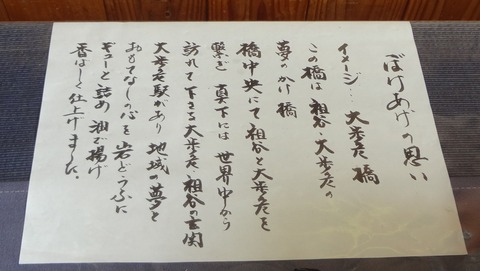 ぼけあげの思い
イメージ：大歩危橋
この橋は祖谷・大歩危の
夢のかけ橋
橋中央にて祖谷と大歩危を
繋ぎ 真下には世界中から
訪れて下さる大歩危・祖谷の玄関
大歩危駅があり 地域の夢と
おもてなしの心を岩どうふに
ギューと詰め 油で揚げ
香ばしく仕上げました。